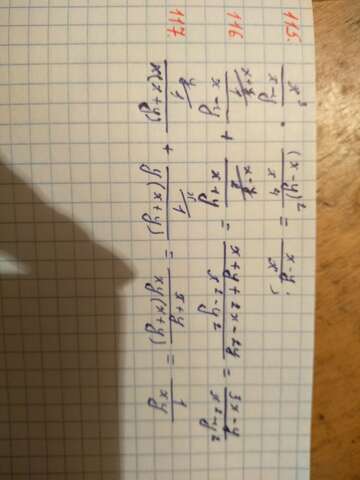 115. x³/(x-y) · (x-y)²/x⁴ = (x-y)/x;
116 1/(x-y) + 2/(x+y) = (x+y+2x-2y)/(x²-y²) = (3x-y)/(x²-y²)
117. 1/(x(x+y)) + 1/(y(x+y)) = (x+y)/(xy(x+y)) = 1/(xy)